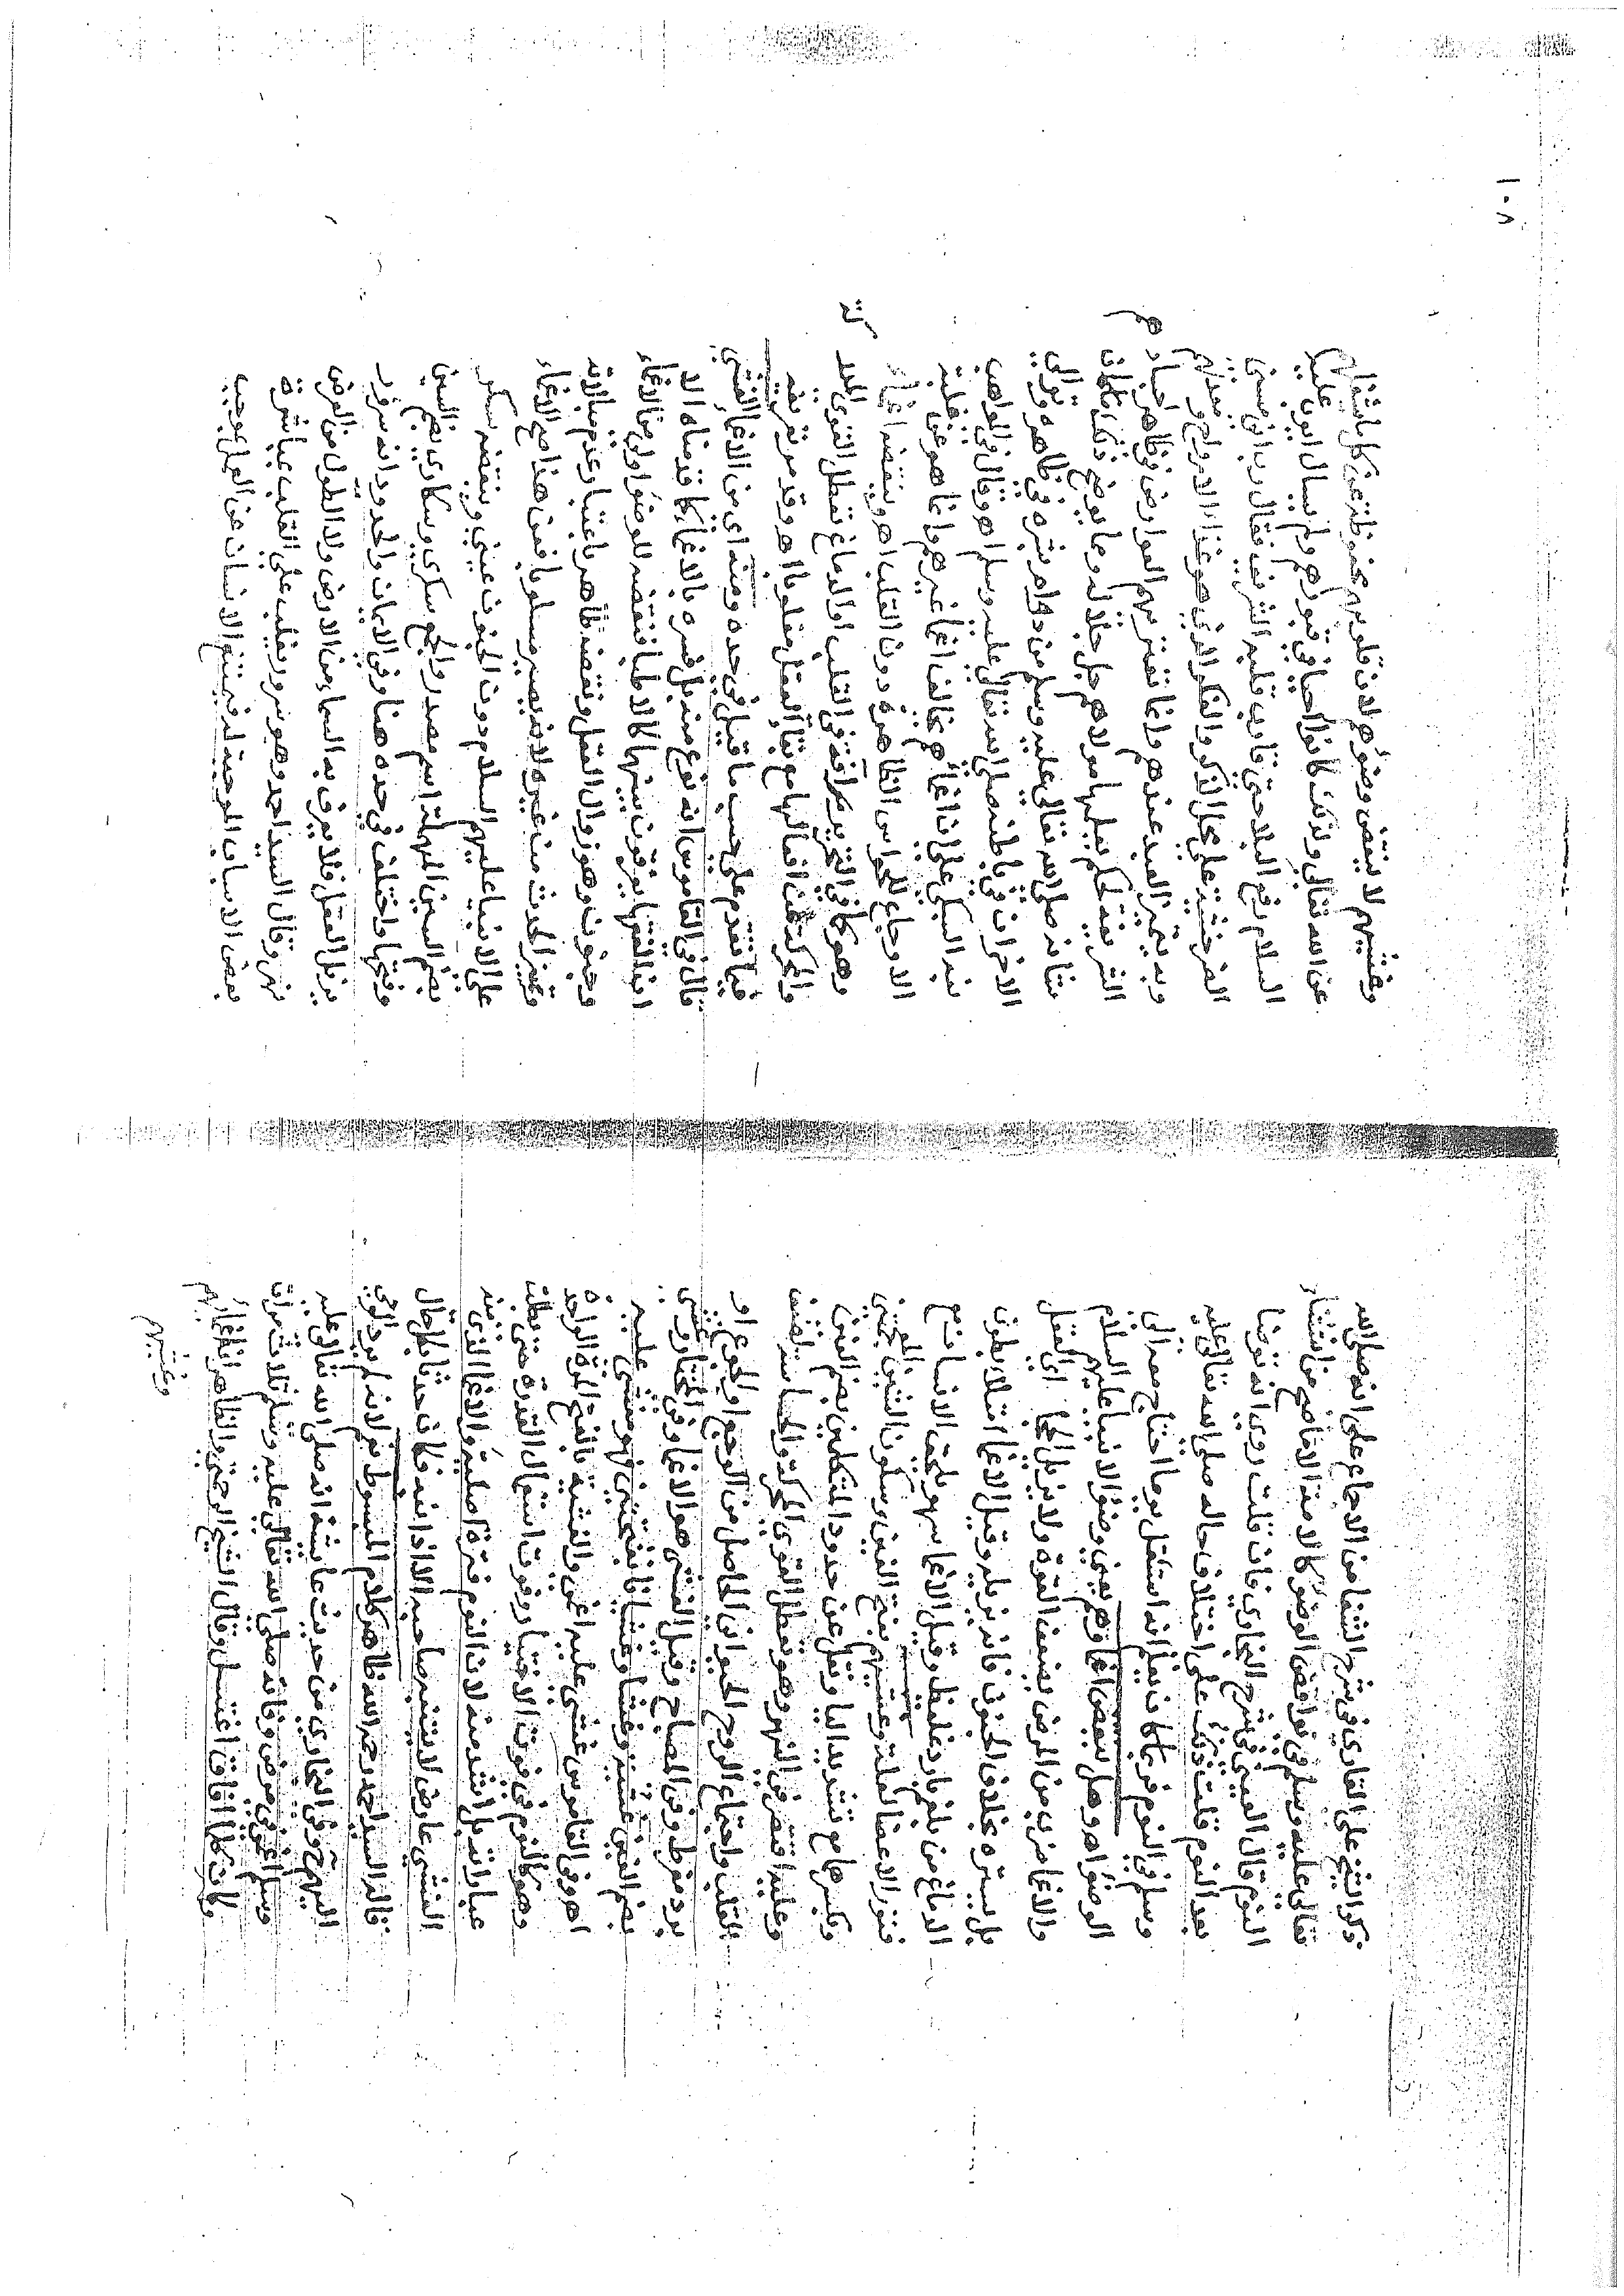 ذكر الشيخ علي القاري في شرح الشفا من الاجماع على انه صلى الله
تعالى عليه وسلم في نواقض الوضوء كالامة الا ما صح من استثناء
النوم قال العيني في شرح البخاري فان قلت روي انه توضا
بعد النوم قلت ذلك على اختلاف حاله صلى الله تعالى عليه
وسلم في النوم فربما كان يعلم انه استثقل نوما احتاج معه الى
الوضوء اهـ وهل ينقض اغماؤهم يعني وضوء الانبيا عليهم السلام
والاغما ضرب من المرض يضعف القوة ولا يزيل الحجا اي العقل
بل يستره بخلاف الجنون فانه يزيله وقيل الاغما امتلا بطون
الدماغ من بلغم بارد غليظ وقيل الاغما سهو يلحق الانسان مع
فتور الاعضا لعلة وغشيهم بفتح الغين وسكون الشين المعجمتين
وبكسرها مع تشديد اليا ونقل عن حدود المتكلمين بضم الغين
وعليه اقتصر في النهر وهو تعطل القوى المحركة والحساسة لضعف
القلب واجتماع الروح الحيواني الحاصل من الوجع او الجوع او
برد مفرط وفي المصباح وقيل الغشي هو الاغما وفي المختار وغشي
بضم الغين غشية وغشيا وغشيانا بفتحتين فهو مغشي عليه
اهـ وفي القاموس غشي عليه اغمي والغشية بالفتح المرة الواحدة
وهو كالنوم في فوت الاختيار وفوت استعمال القدرة حتى بطلت
عباراته بل اشد منه لان النوم فترة اصلية والاغما الذي منه
الغشي عارض لا يتنبه صاحبه الا اذا نبه فكان حدثا بكل حال
قاله السيد احمد رحمه الله ظاهر كلام المبسوط نعم لانه لم يرد
وفي البخاري من حديث عايشة انه صلى الله تعالى عليه
وسلم اغمي في مرض وفاته صلى الله تعالى عليه وسلم ثلاث مرات
وكان كلما افاق اغتسل وقال الشيخ الرحمتي والظاهر ان اغماءهم
وغشيهم
١٠٥
وغشيهم لا ينقض وضوءهم لان قلوبهم محفوظة عن كل ما يشغلهم
عن الله تعالى ولذلك كانوا احيا في قبورهم ولم يسال ايوب عليه
السلام رفع البلا حتى قارب قلبه الشريف فقال رب اني مسني
الضر خشية على محل الذكر والفكر الذي هو غذاء الارواح ومعدتهم
وبه يتميز العبد عندهم وانما تعتريهم العوارض في ظاهر اجسادهم
الشريفة لحكم يعلمها مولاهم جل جلاله ومما يوضح ذلك ما كان
شانه صلى الله تعالى عليه وسلم من دوام بشره في ظاهره وتوالي
الاحزان في باطنه صلى الله تعالى عليه وسلم اهـ وقال في المواهب
نبه السبكي على ان اغماءهم يخالف اغماء غيرهم وانما هو عن غلبة
الاوجاع للحواس الظاهرة دون القلب اهـ وينقضه اغماء
وهو كما في التحرير آفة في القلب او الدماغ تعطل القوى المدركة
والمحركة عن افعالها مع بقا العقل مغلوبا اهـ وقد مر تعريفه
فيما تقدم على حسب ما قيل في حده ومنه اي من الاغما الغشي
قال في القاموس انه نوع منه بل فسره بالاغماء كما قدمناه الا
ان الفقها يفرقون بينهما كالاطبا فنقضه للوضوء اولى من الاغماء
وجنون وهو زوال العقل ونقضه ظاهر باعتبار عدم مبالاته
وتمييز الحدث من غيره لانه يصير مسلوبا فمن هذا صح الاغماء
على الانبيا عليهم السلام دون الجنون عيني وينقضه سكر
بضم السين المهملة اسم مصدر والجمع سكرى وسكارى بضم السين
وفتحها واختلف في حده هنا وفي الايمان والحدود انه سرور
يزيل العقل فلا يعرف به السماء من الارض ولا الطول من العرض
نهر وقال السيد احمد وهو سرور يغلب على القلب بمباشرة
بعض الاسباب الموجبة له فيمتنع الانسان عن العمل بموجب